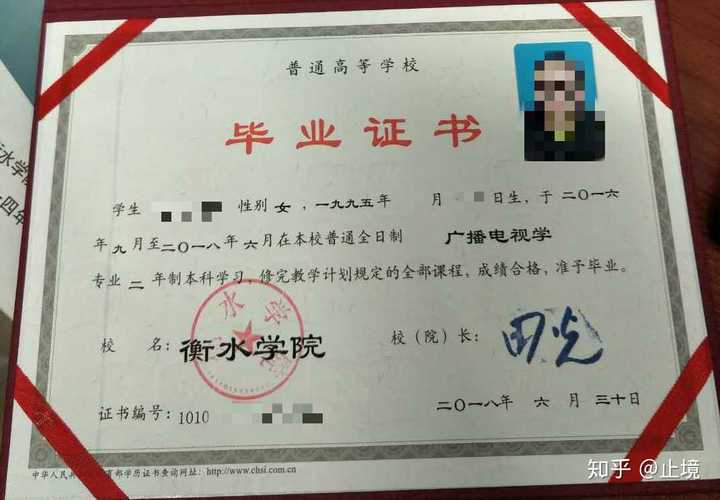 普通高等学校
毕业证书
学生 性别 女 ，一九九五年 月 日生，于 二〇一六
年 九 月至二〇一八年 六 月在本校普通全日制 广播电视学
专业 二 年制本科学习，修完教学计划规定的全部课程，成绩合格，准予毕业。
校 名：衡水学院 校（院）长：田光
证书编号：1010 二〇一八年 六 月 三十日
中华人民共 育部学历证书查询网址：http://www.chsi.com.cn
水学
水学院
四年
知乎 @止境